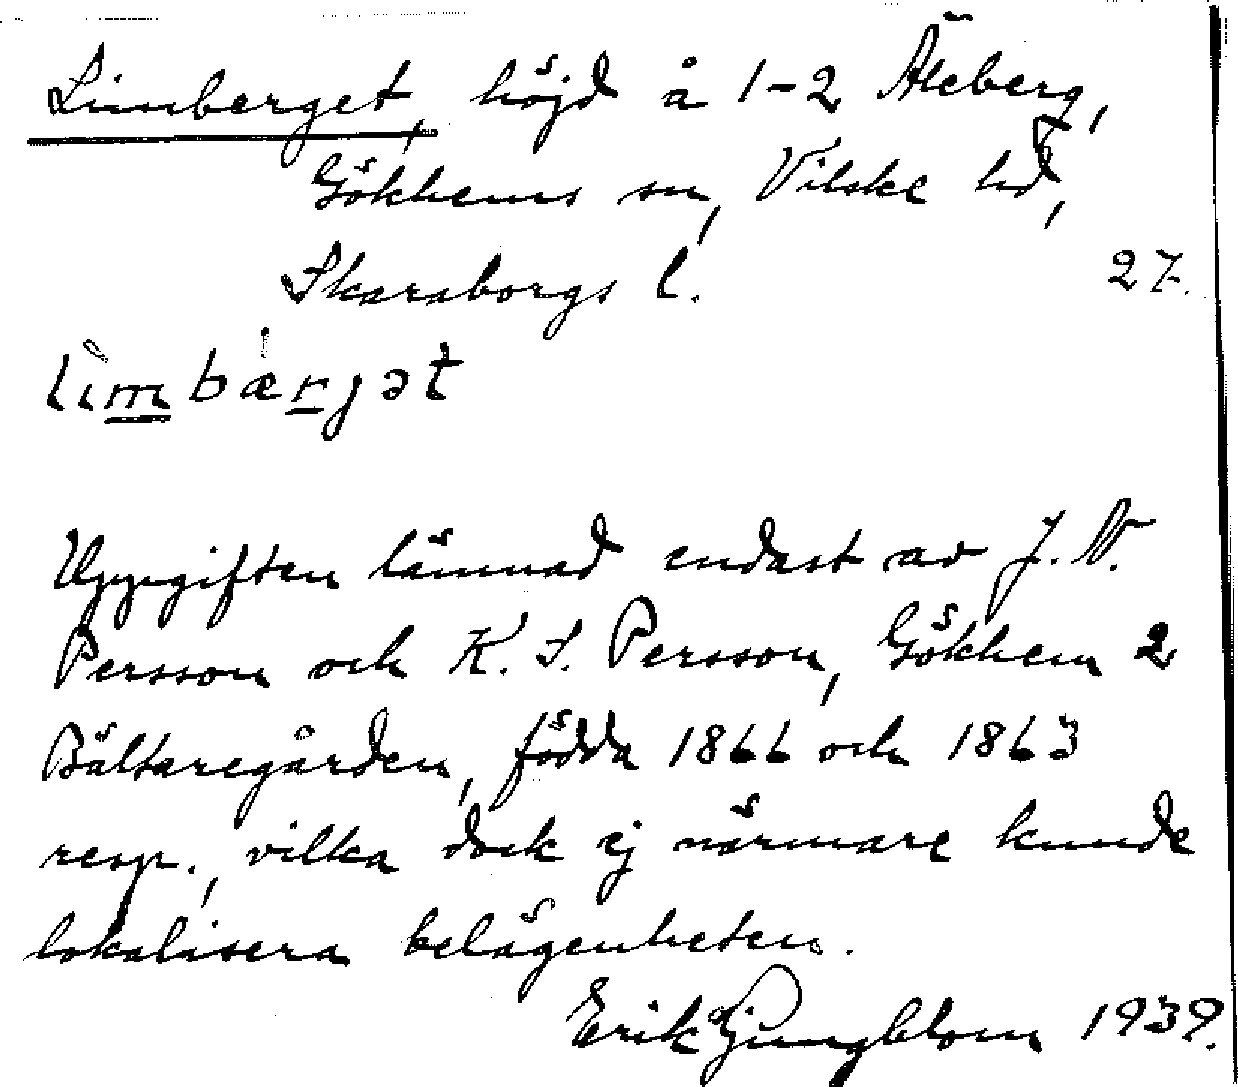 Limberget, höjd å 1-2 Åleberg,
Gökhems sn, Vilske hd,
Skaraborgs l. 27.
lìmbær̲jət
Uppgiften lämnad endast av J. W.
Persson och K. S. Persson, Gökhem 2
Bältaregården, födda 1866 och 1863
resp., vilka dock ej närmare kunde
lokalisera belägenheten.
Erik Ljungblom 1939.